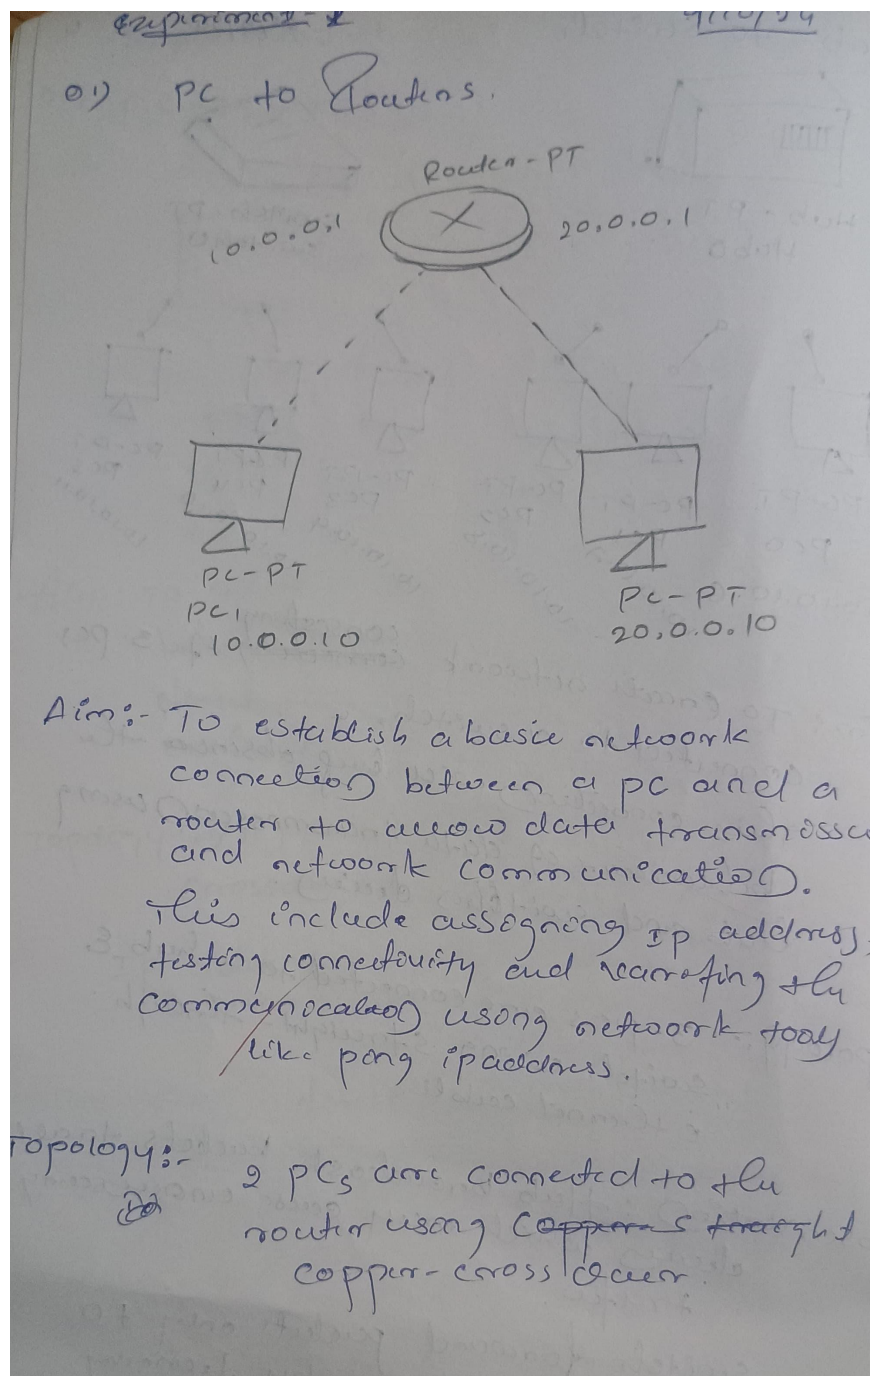 Experiment - 1
9/10/24
01) PC to Routers.
Router-PT
10.0.0.1
20.0.0.1
PC-PT
PC1
10.0.0.10
PC-PT
20.0.0.10
Aim:- To establish a basic network
connection between a pc and a
router to allow data transmissi
and network communication.
This include assigning IP address,
testing connectivity and the
communication using network tools
like ping ipaddress.
Topology:- 2 PCs are connected to the
router using copper straight
copper-cross over.